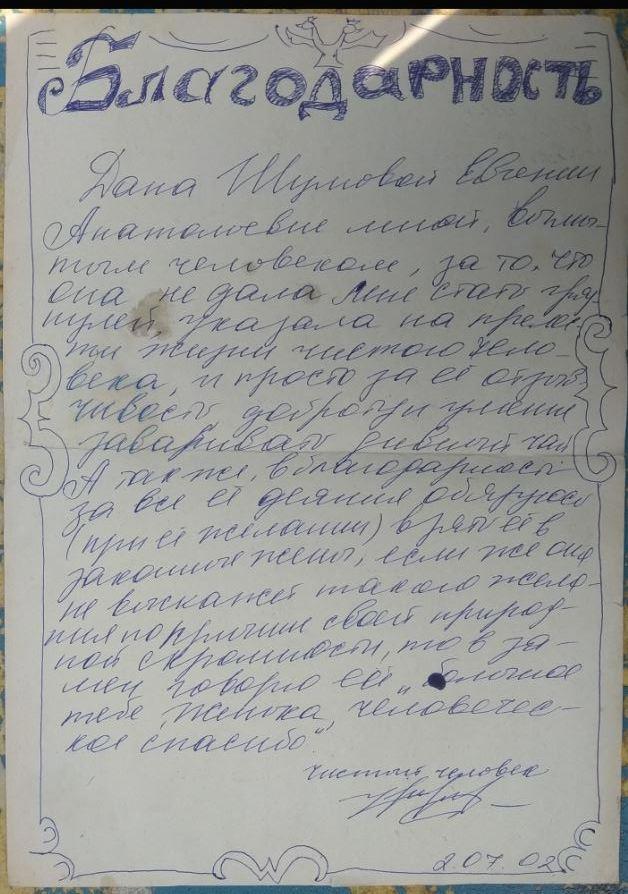 Благодарность
Дана Шумовой Евгении
Анатольевне мной, вымы-
тым человеком, за то, что
она не дала мне стать гряз-
нулей, указала на прелес-
ти жизни чистого чело-
века, и просто за её отзыв-
чивость доброту и умение
заваривать дивный чай
А также, в благодарность
за все её деяния обязуюсь
(при её желании) взять её в
законные жены, если же она
не выскажет такого жела-
ния по причине своей природ-
ной скромности, то в за-
мен говорю ей „большое
тебе, Женька, человечес-
кое спасибо“.
чистый человек
2.07.02